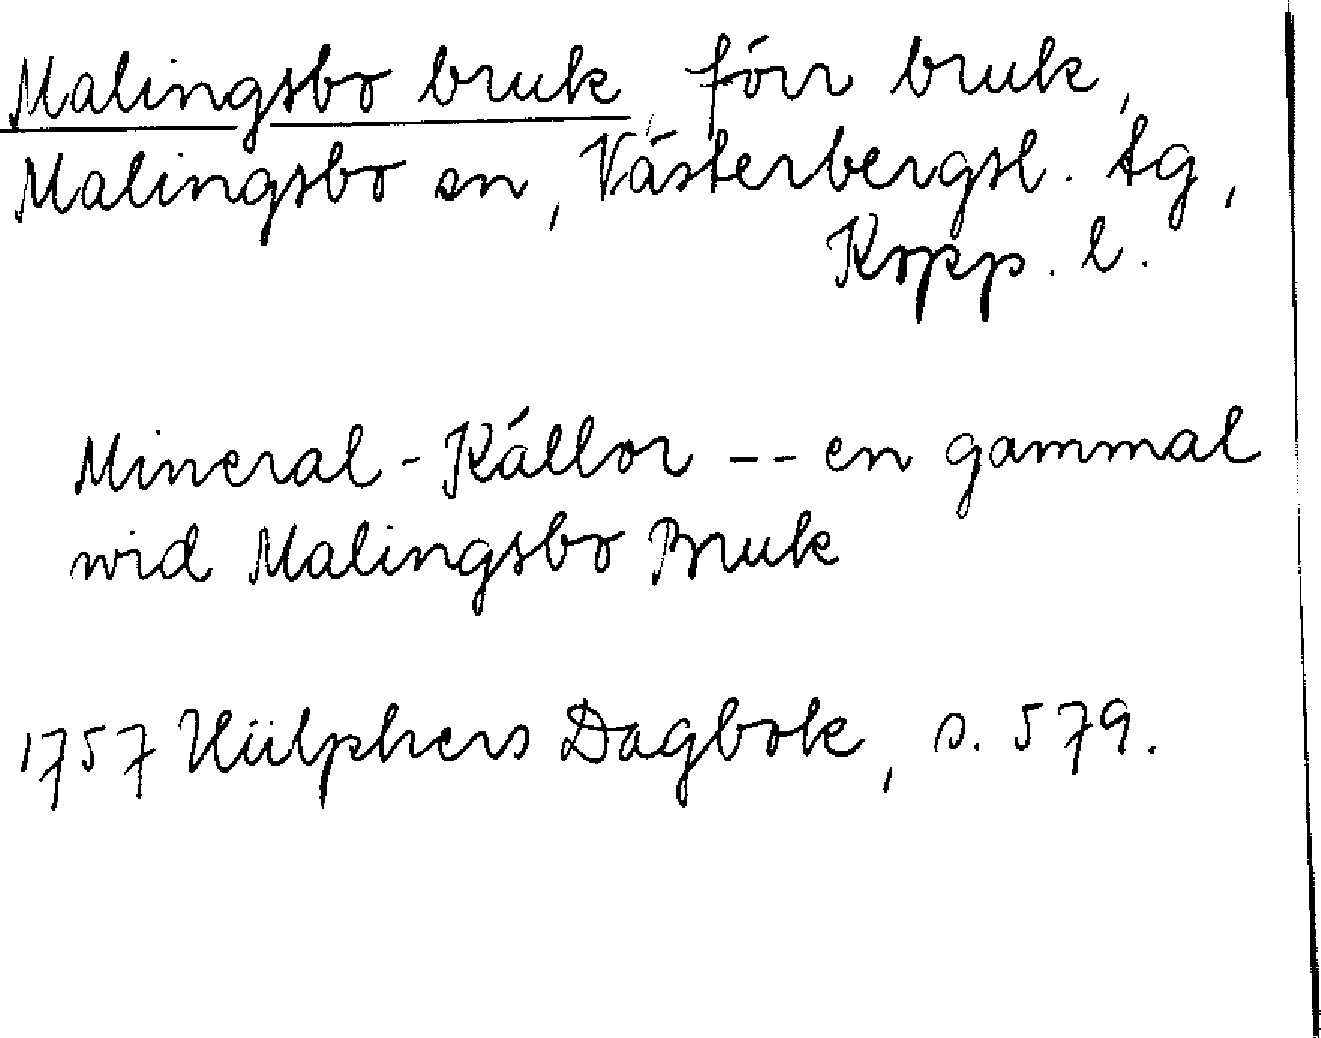 Malingsbo bruk, förr bruk,
Malingsbo sn, Västerbergsl. tg,
Kopp. l.
Mineral-Källor -- en gammal
wid Malingsbo Bruk
1757 Hülphers Dagbok, s. 579.